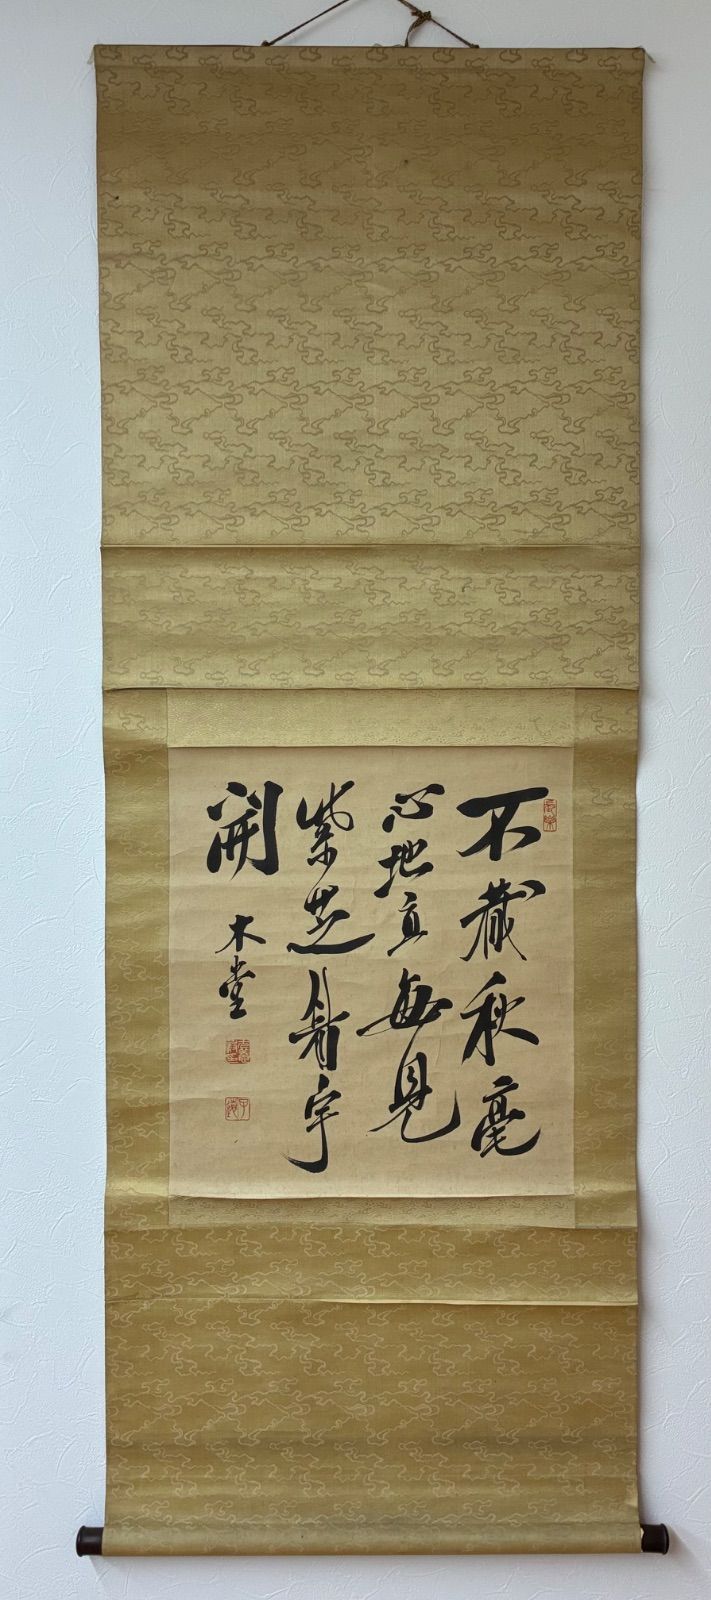 不藏秋毫
心地直毎見
紫芝眉宇
開
木堂